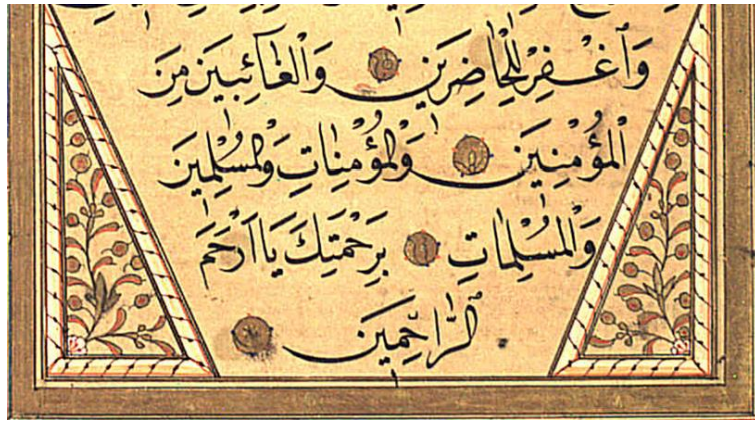 وَٱغْفِرْ لِلْحَاضِرِينَ وَالْغَآئِبِينَ مِنَ
الْمُؤْمِنِينَ وَالْمُؤْمِنَاتِ وَالْمُسْلِمِينَ
وَالْمُسْلِمَاتِ بِرَحْمَتِكَ يَا اَرْحَمَ
الرَّاحِمِينَ